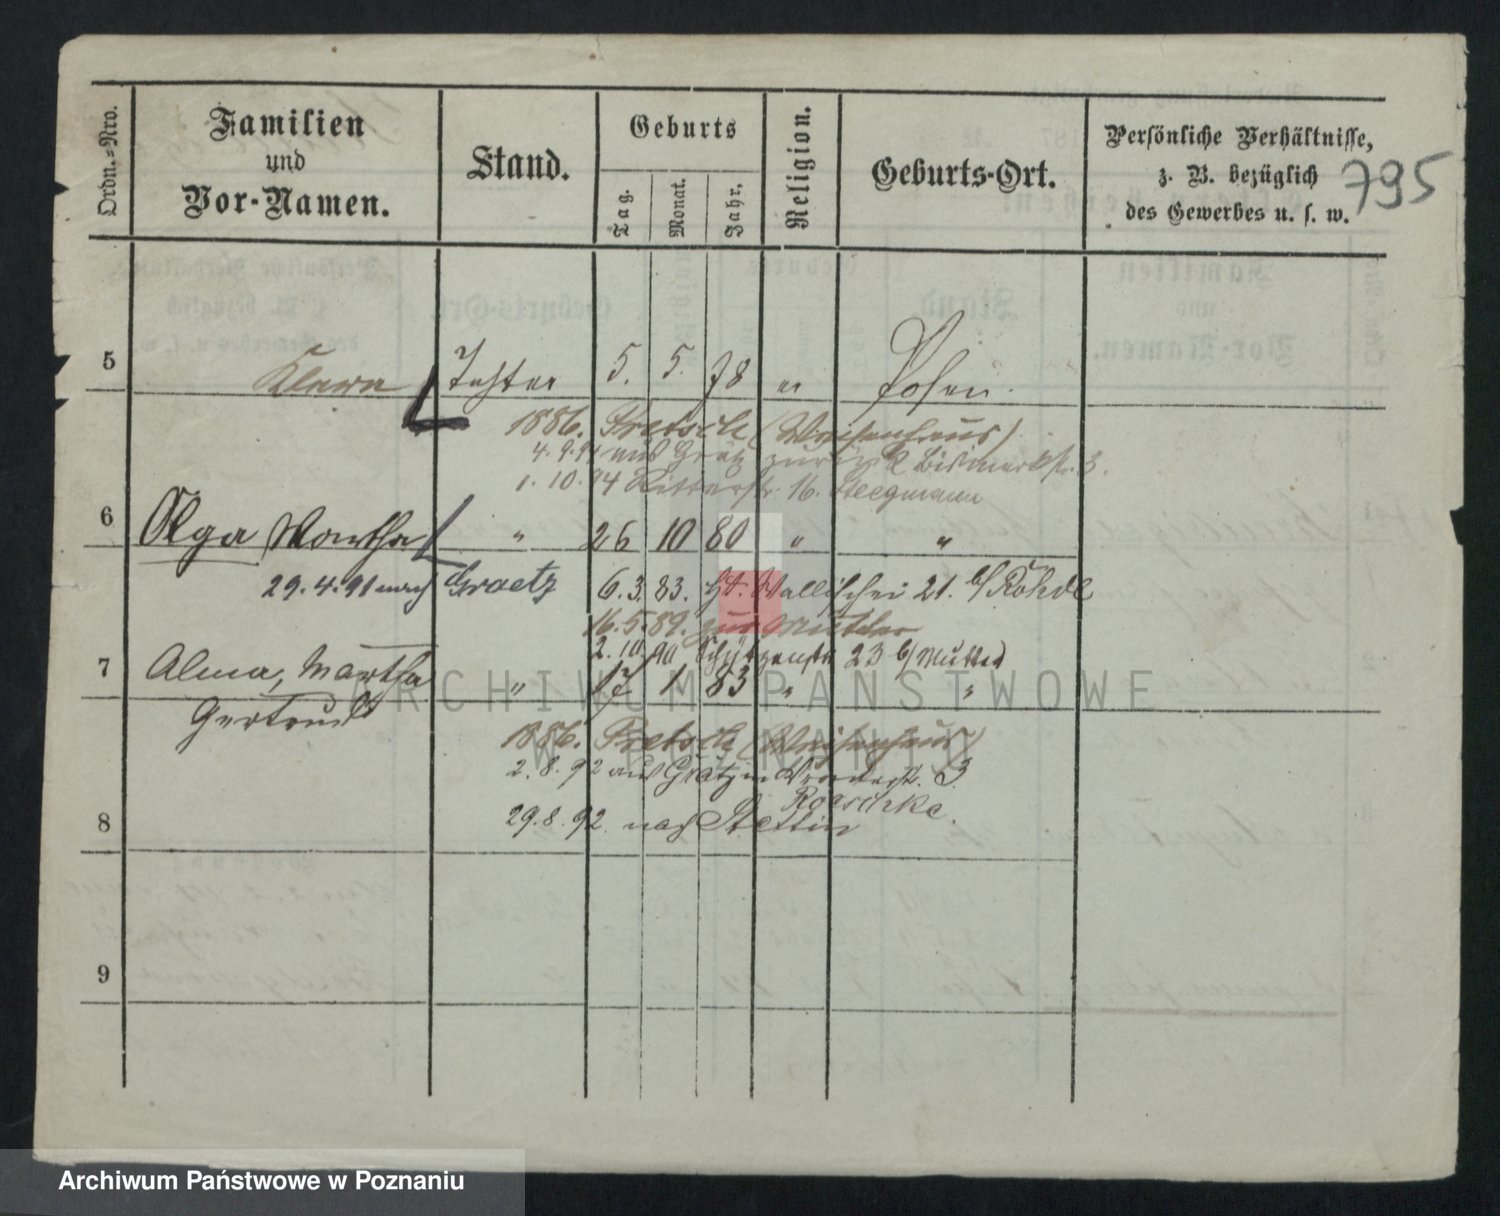 Ordn.-Nro.
Familien
und
Vor-Namen.
Stand.
Geburts
Tag.
Monat.
Jahr.
Religion.
Geburts-Ort.
Persönliche Verhältnisse,
z. B. bezüglich
des Gewerbes u. s. w.
795
5 Klara Tochter 5. 5. 78 " Posen.
1886. Pretsch (Waisenhaus)
4.9.91 aus Grätz zurück Bismarckstr. 3.
1.10.94 Ritterstr. 16. Stegmann
6 Olga Martha " 26 10 80 " "
29.4.91 nach Graetz 6.3.83. Wallischei 21. b/ Röhde
16.5.89. zur Mutter
2.10.90 Schützenstr 23 b/ Mutter
7 Alma, Martha " 17 1 83 " "
Gertrud
1886. Pretsch (Waisenhaus)
2.8.92 aus Grätz 3.
Roeschke.
29.8.92. nach Stettin
8
9
ARCHIWUM PAŃSTWOWE
W POZNANIU
Archiwum Państwowe w Poznaniu